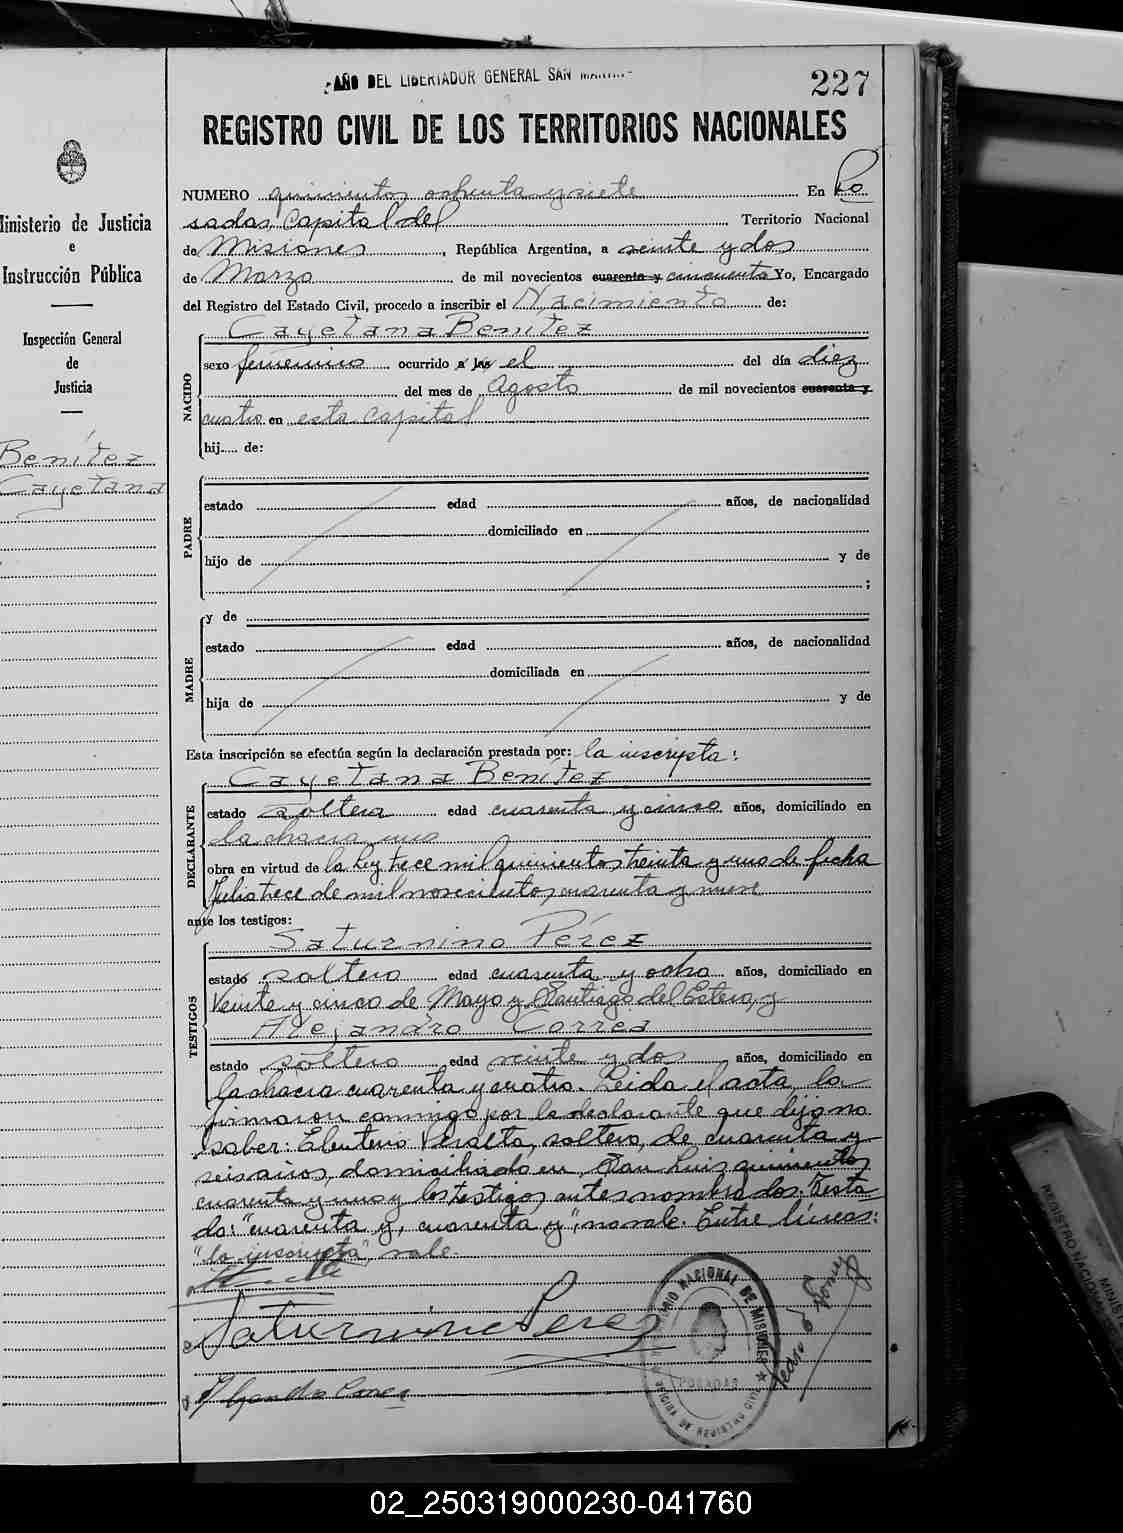 AÑO DEL LIBERTADOR GENERAL SAN
227
REGISTRO CIVIL DE LOS TERRITORIOS NACIONALES
Ministerio de Justicia
e
Instrucción Pública
Inspección General
de
Justicia
Benítez
Cayetana
NUMERO quinientos ochenta y siete En Po
sadas, Capital del Territorio Nacional
de Misiones, República Argentina, a veinte y dos
de Marzo de mil novecientos cuarenta y cincuenta Yo, Encargado
del Registro del Estado Civil, procedo a inscribir el Nacimiento de:
NACIDO
Cayetana Benítez
sexo femenino ocurrido a las el del día diez
del mes de Agosto de mil novecientos cuarenta y
cuatro en esta capital
hij.... de:
PADRE
estado edad años, de nacionalidad
domiciliado en
hijo de y de
;
MADRE
y de
estado edad años, de nacionalidad
domiciliada en
hija de y de
Esta inscripción se efectúa según la declaración prestada por: la inscripta:
DECLARANTE
Cayetana Benítez
estado soltera edad cuarenta y cinco años, domiciliado en
la chacra uno
obra en virtud de la Ley trece mil quinientos treinta y uno de fecha
Julio trece de mil novecientos cuarenta y nueve
ante los testigos:
TESTIGOS
Saturnino Pérez
estado soltero edad cuarenta y ocho años, domiciliado en
Veinte y cinco de Mayo y Santiago del Estero, y
Alejandro Correa
estado soltero edad veinte y dos años, domiciliado en
la chacra cuarenta y cuatro. Leida el acta, la
firmaron conmigo por la declarante que dijo no
saber: Eleuterio Peralta, soltero, de cuarenta y
seis años, domiciliado en San Luis quinientos
cuarenta y uno y los testigos antes nombrados. Testa
do: "cuarenta y, cuarenta y", no vale. Entre líneas:
"la inscripta", vale.
Saturnino Perez
Alejandro Correa
NACIONAL DE MISIONES
POSADAS
OFICINA DE REGISTRO CIVIL
MINIST
REGISTRO NACIONAL
02_250319000230-041760